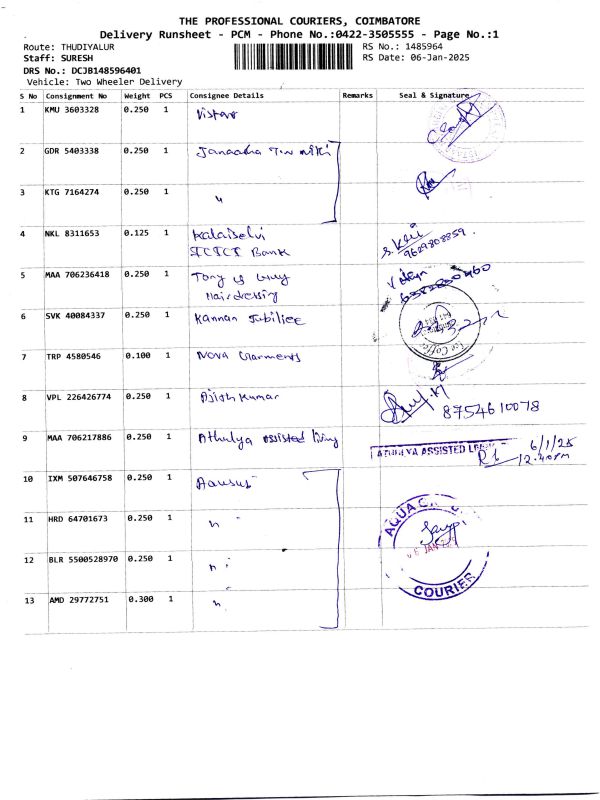 THE PROFESSIONAL COURIERS, COIMBATORE
Delivery Runsheet - PCM - Phone No.:0422-3505555 - Page No.:1
Route: THUDIYALUR RS No.: 1485964
Staff: SURESH RS Date: 06-Jan-2025
DRS No.: DCJB148596401
Vehicle: Two Wheeler Delivery
S No Consignment No Weight PCS Consignee Details Remarks Seal & Signature
1 KMU 3603328 0.250 1 Vistar
2 GDR 5403338 0.250 1 Janaatha
3 KTG 7164274 0.250 1 "
4 NKL 8311653 0.125 1 Kalaiselvi
ICICI Bank 9629808859
5 MAA 706236418 0.250 1 Tony & Guy
Hairdressing
6 SVK 40084337 0.250 1 Kannan Jubiliee
7 TRP 4580546 0.100 1 NOVA Garments
8 VPL 226426774 0.250 1 Ajith Kumar 8754610078
9 MAA 706217886 0.250 1 Athulya assisted living ATHULYA ASSISTED 6/1/25
12.40pm
10 IXM 507646758 0.250 1
11 HRD 64701673 0.250 1 " AQUA
12 BLR 5500528970 0.250 1 " JAN
13 AMD 29772751 0.300 1 " COURIER